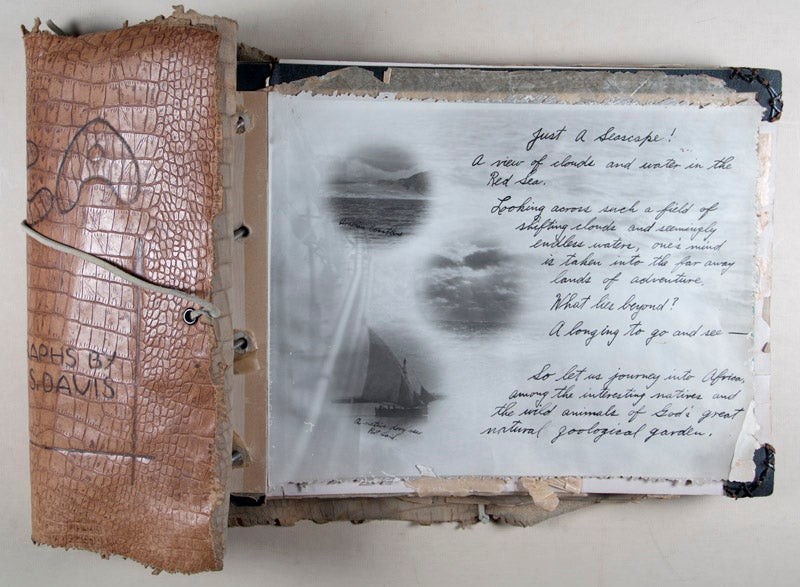 APHS BY
S. DAVIS
Just A Seascape!
A view of clouds and water in the
Red Sea.
Looking across such a field of
shifting clouds and seemingly
endless waters, one's mind
is taken into the far away
lands of adventure.
What lies beyond?
A longing to go and see —
So let us journey into Africa,
among the interesting natives and
the wild animals of God's great
natural zoological garden.